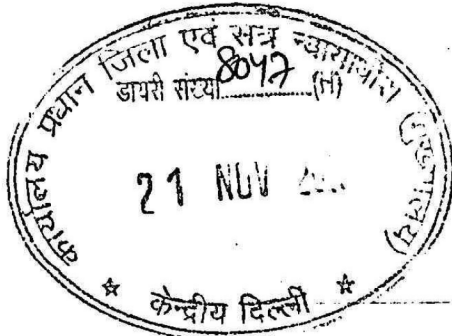 कार्यालय प्रधान जिला एवं सत्र न्यायाधीश (मुख्यालय)
डायरी संख्या 8047 (H)
21 NOV
केन्द्रीय दिल्ली